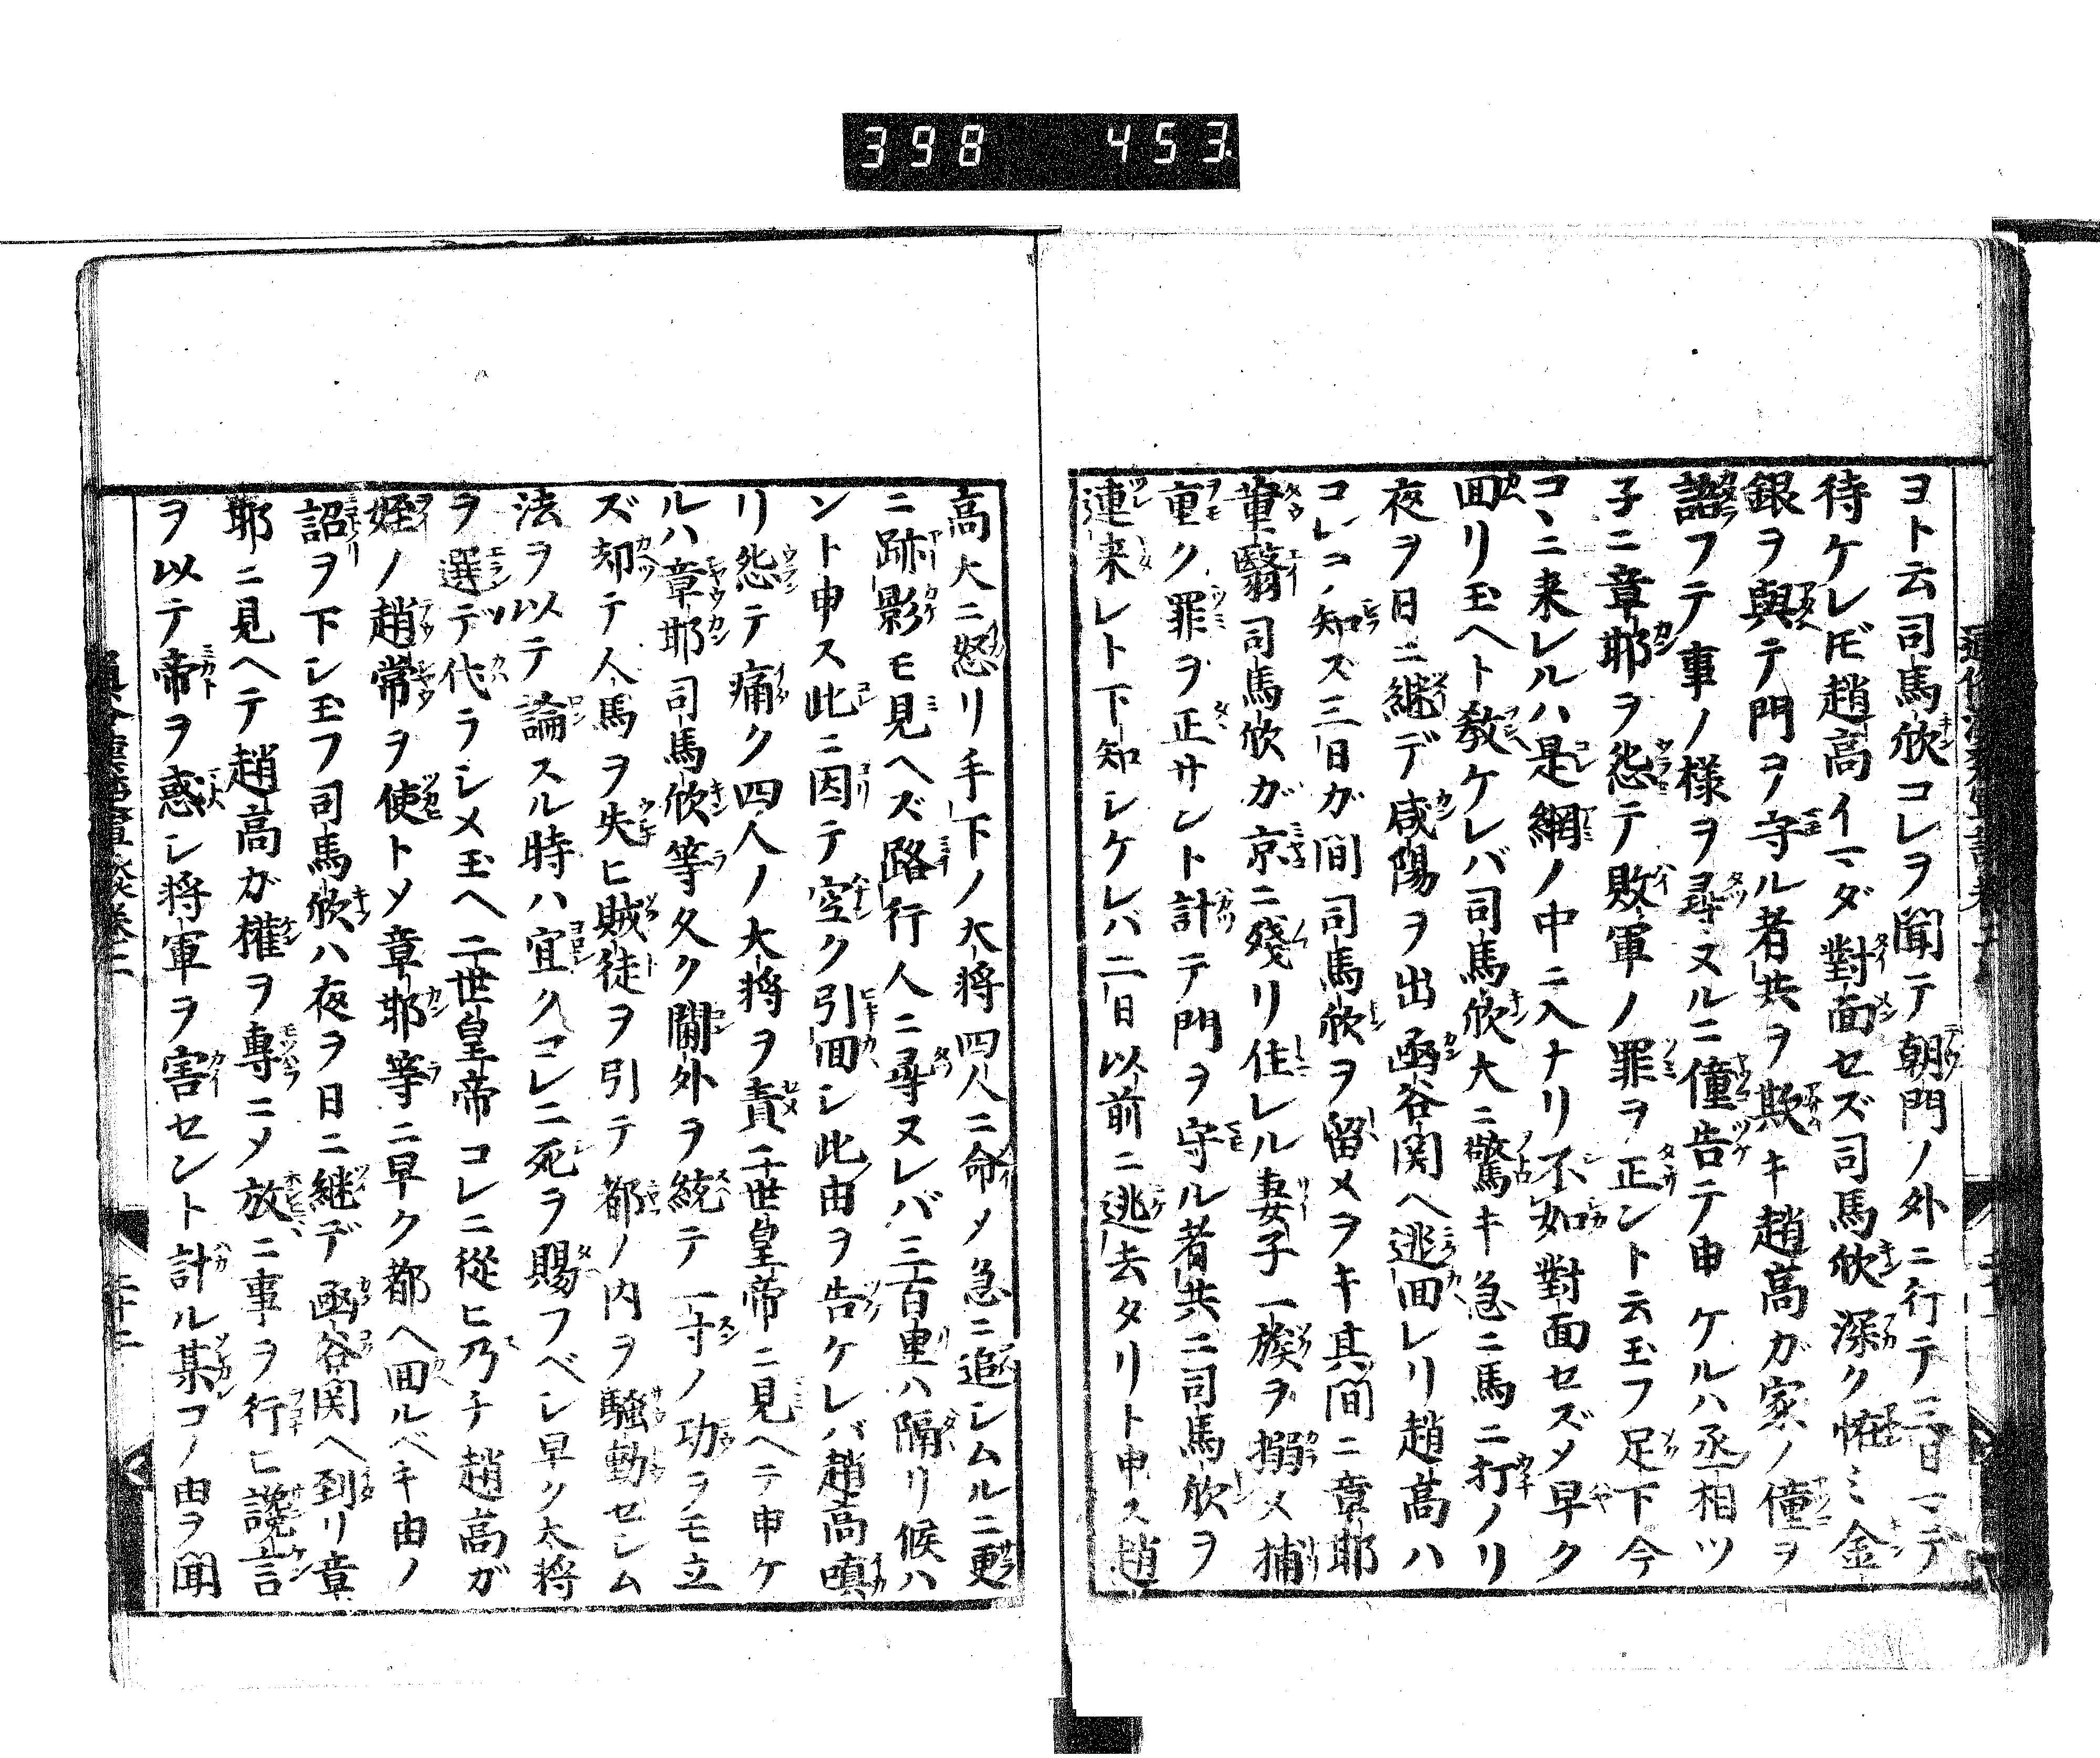 398 453
ヨト云司馬欣コレヲ聞テ朝門ノ外ニ行テ三日マデ
待ケレ𪜈趙高イマダ對面セズ司馬欣深ク恠ミ金
銀ヲ與テ門コノ守ル者共ヲ欺キ趙高ガ家ノ僮ヲ
語フテ事ノ様ヲ尋ヌルニ僮告テ申ケルハ丞相ツ
子ニ章邯ヲ怨テ敗軍ノ罪ヲ正ント云玉フ足下今
コヽニ来レルハ是網ノ中ニ入ナリ不如對面セズ〆早ク
囬リ玉ヘト教ケレバ司馬欣大ニ驚キ急ニ馬ニ打ノリ
夜ヲ日ニ継デ咸陽ヲ出函谷関ヘ逃囬レリ趙高ハ
コレコノ知ズ三日ガ間司馬欣ヲ留メヲキ其間ニ章邯
董翳司馬欣ガ京ニ残リ住レル妻子一族ヲ搦メ捕
重ク罪ヲ正サント計テ門ヲ守ル者共ニ司馬欣ヲ
連来レト下知シケレバ二日以前ニ逃去タリト申ス趙
高大ニ怒リ手下ノ大将四人ニ命〆急ニ追シムルニ更
ニ跡影モ見ヘズ路行人ニ尋ヌレバ三百里ハ隔リ候ハ
ント申ス此ニ因テ空ク引囬シ此由ヲ告ケレバ趙高嗔
リ怨テ痛ク四人ノ大将ヲ責二世皇帝ニ見ヘテ申ケ
ルハ章邯司馬欣等久ク閫外ヲ統テ一寸ノ功ヲモ立
ズ却テ人馬ヲ失ヒ賊徒ヲ引テ都ノ内ヲ騒動セシム
法ヲ以テ論スル時ハ宜クコレニ死ヲ賜フベシ早ク大将
ヲ選デ代ラシメ玉ヘ二世皇帝コレニ從ヒ乃チ趙高ガ
姪ノ趙常ヲ使ト〆章邯等ニ早ク都ヘ囬ルベキ由ノ
詔ヲ下シ玉フ司馬欣ハ夜ヲ日ニ継デ函谷関ヘ到リ章
邯ニ見ヘテ趙高ガ權ヲ專ニ〆放ニ事ヲ行ヒ讒言
ヲ以テ帝ヲ惑シ将軍ヲ害セント計ル某コノ由ヲ聞